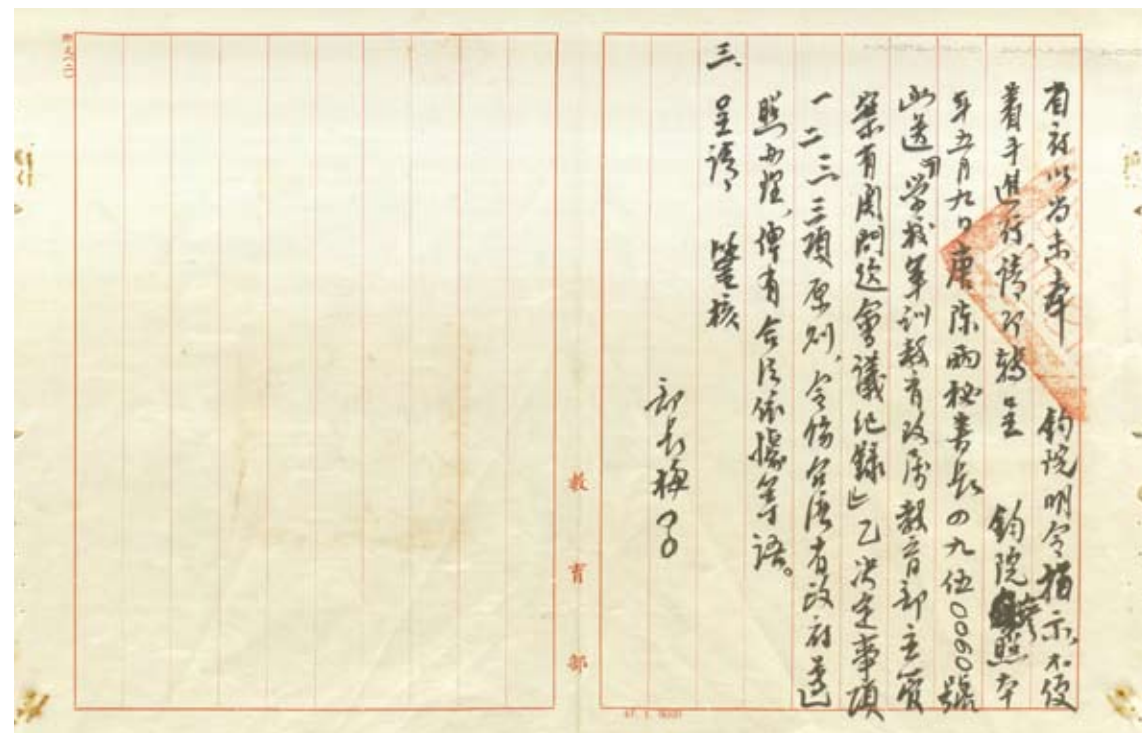 省府以尚未奉　鈞院明令指示,不便
着手進行,請即轉呈　鈞院參照本
年五月九日唐陳兩秘書長四九伍0060號
函送「學校軍訓教育改屬教育部主管
案有關問題會議紀錄」乙決定事項
一二三三項原則,令飭台灣省政府遵
照办理,俾有合法依據等語。
三、呈請　鑒核
部長梅
教育部